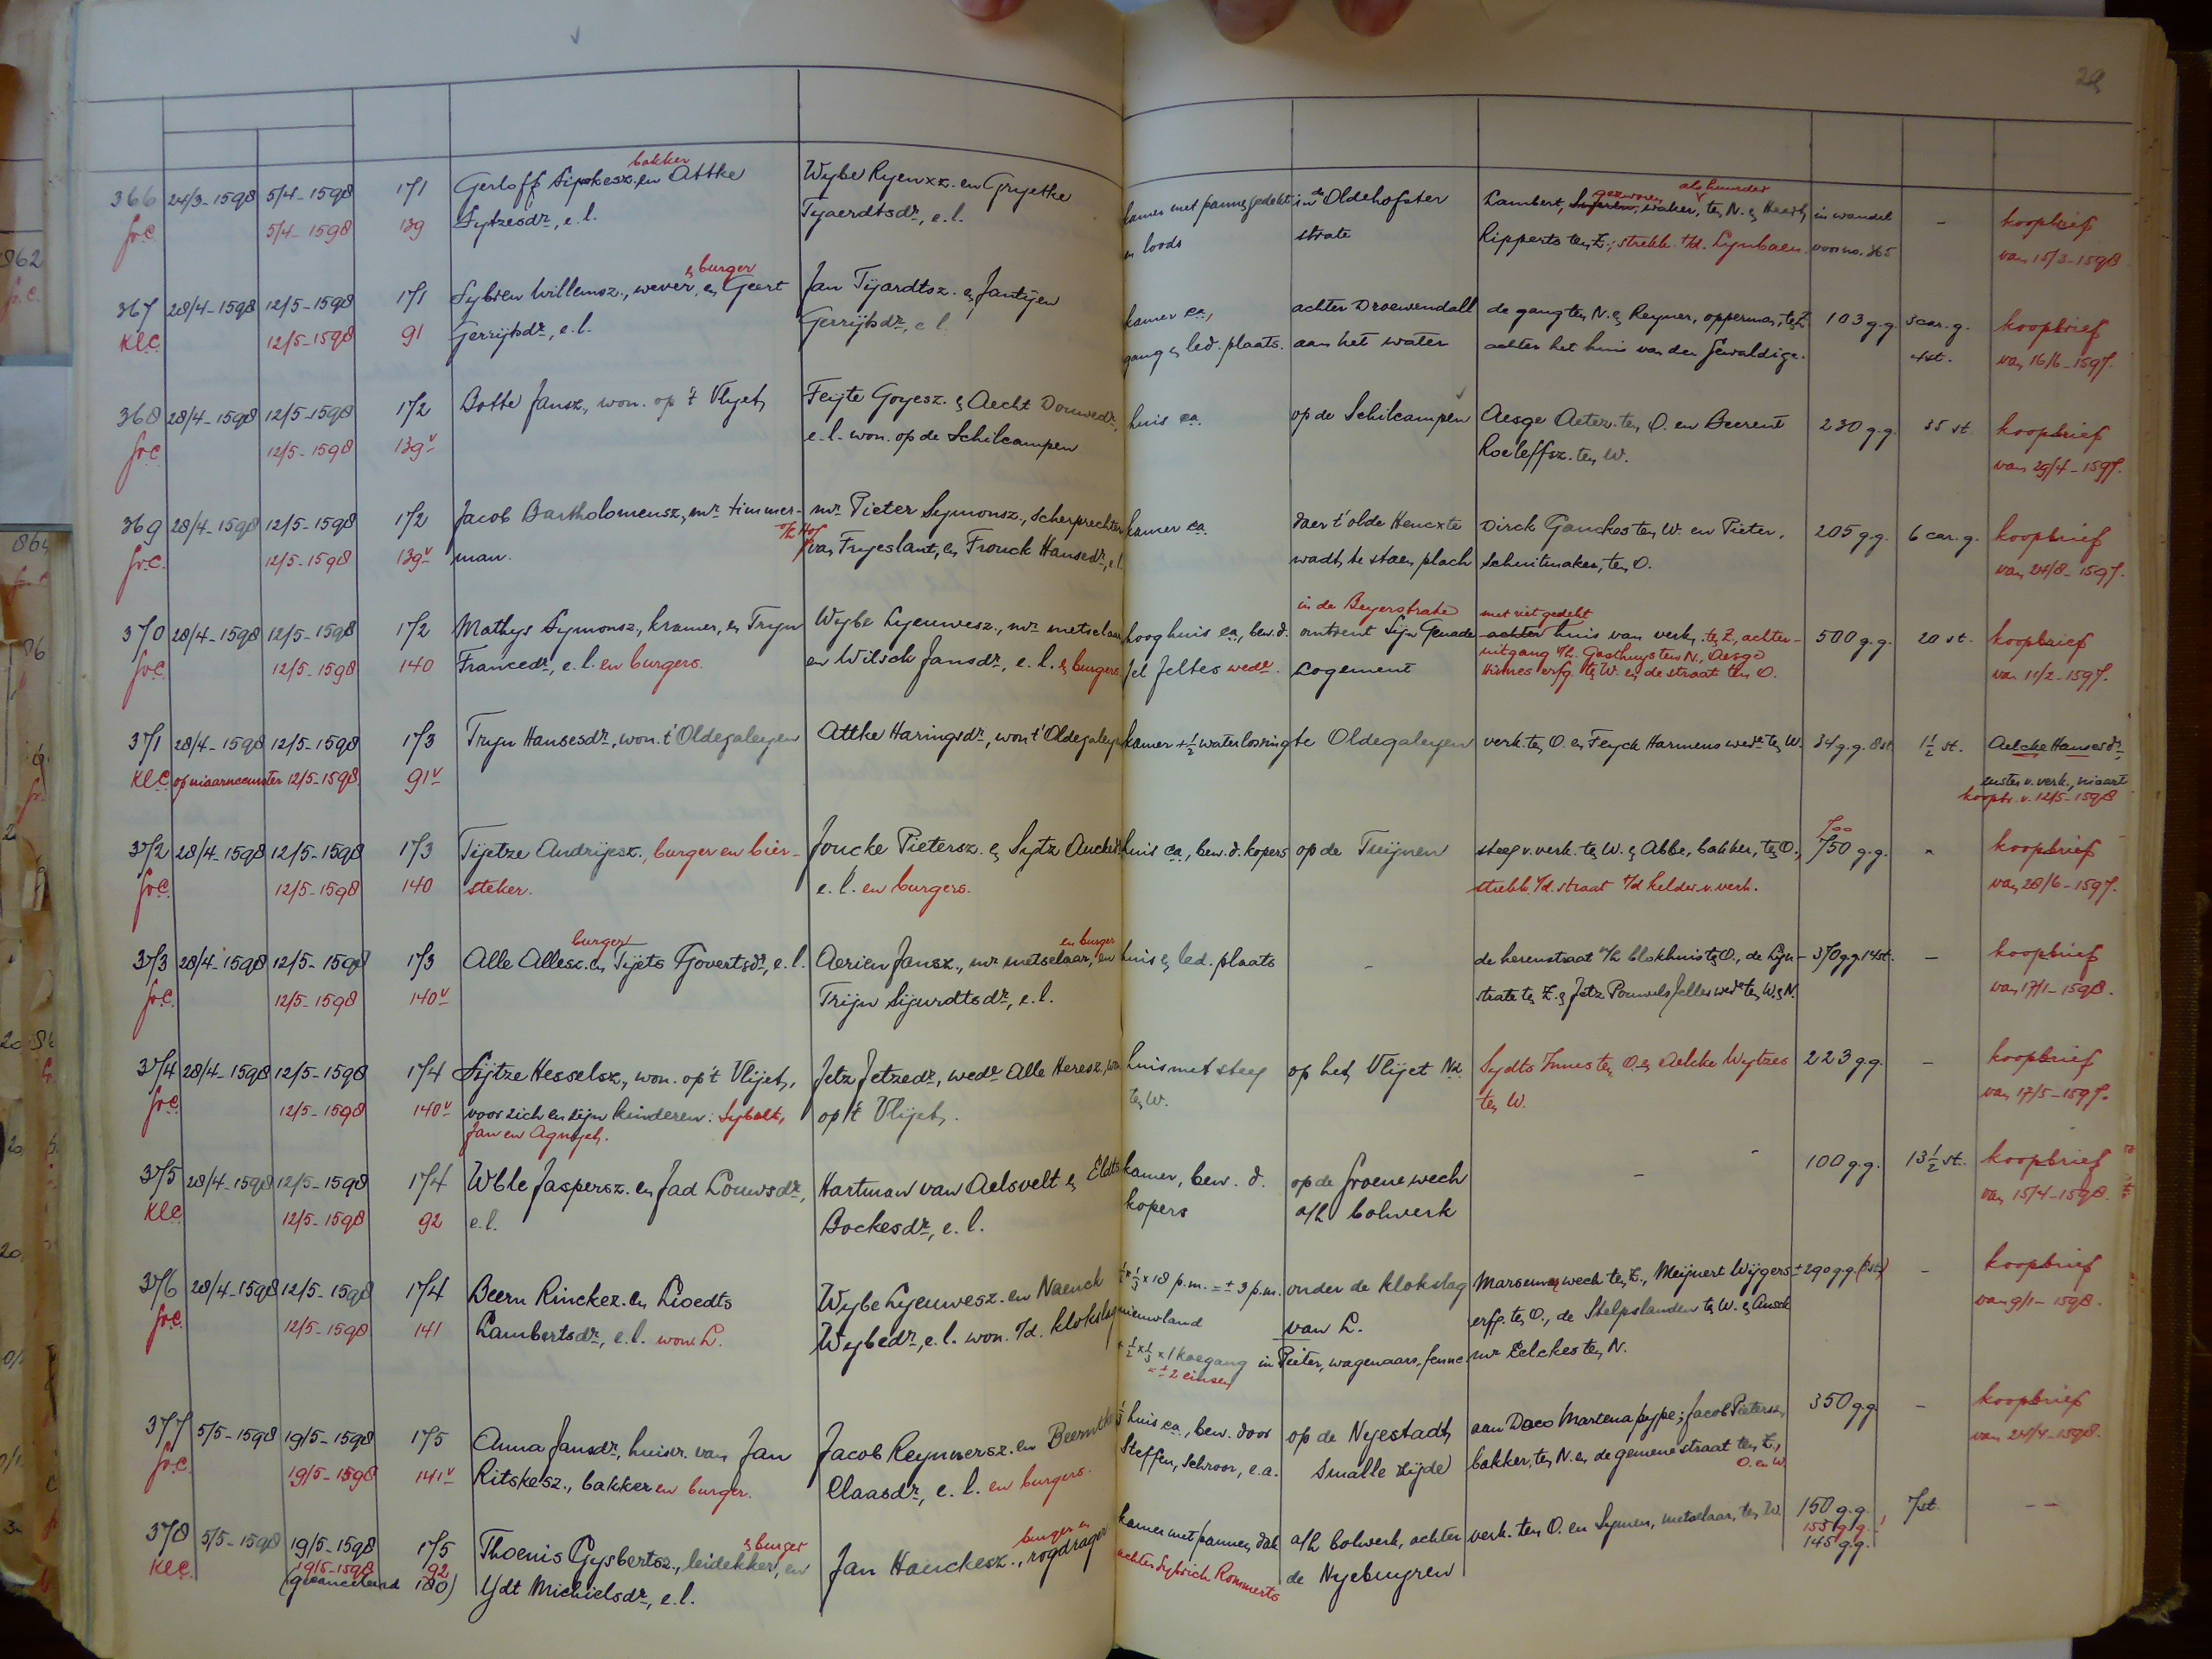 29
366 24/3-1598 5/4-1598 171 Gerloff Sipkesz. en Attke Wybe Ryenxz. en Gryetke kamer met pannen gedekt in de Oldehofster Lambert, waker, ten N. en in wandel - koopbrief
bakker gezworen
fr.C. 5/4-1598 139 Sytzesdr., e.l. Tyaerdtsdr., e.l. en loods strate Ripperts ten Z., strekk. t/d. Lynbaen. voor no. 365 van 15/3-1598
367 28/4-1598 12/5-1598 171 Sybren Willemsz., wever, en Geert Jan Tijardtsz. en Jantyen kamer ca., achter Droevendall de gang ten N. en Reyner, opperman, ten Z. 103 g.g. 5 car. g. koopbrief
en burger
Kl.C. 12/5-1598 91 Gerrijtsdr., e.l. Gerrijtsdr., e.l. gang en led. plaats. aan het water achter het huis van den Gewaldige. 4 st. van 16/6-1597.
368 28/4-1598 12/5-1598 172 Botte Jansz., won. op 't Vlyet, Feyte Goyesz. en Aecht Douwedr., huis ca. op de Schilcampen Aesge Aetez. ten O. en Beerent 230 g.g. 35 st. koopbrief
fr.C. 12/5-1598 139v e.l. won. op de Schilcampen Roeleffsz. ten W. van 29/4-1597.
369 28/4-1598 12/5-1598 172 Jacob Bartholomeusz., mr. timmer- mr. Pieter Symonsz., scherprechter kamer ca. daer t'olde Hencxte Dirck Ganckes ten W. en Pieter, 205 g.g. 6 car. g. koopbrief
fr.C. 12/5-1598 139v man. v/h Hof van Fryeslant, en Fronck Hansedr., e.l. wadt, te staen plach schuitmaker, ten O. van 24/8-1597.
in de Beyerstrate met riet gedekt
370 28/4-1598 12/5-1598 172 Mathys Symonsz., kramer, en Tryn Wybe Lyeuwesz., mr. metselaar hoog huis ca., bew. d. omtrent Sijn Genade achter huis van verk. ten Z., achter- 500 g.g. 20 st. koopbrief
fr.C. 12/5-1598 140 Francedr., e.l. en burgers. en Wilsck Jansdr., e.l. en burgers. Jel Jeltes wedr. Logement uitgang v/h. Gasthuys ten N., Aesge
erfg. ten W. en de straat ten O. van 11/2-1597.
371 28/4-1598 12/5-1598 173 Tryn Hansesdr., won. t'Oldegaleyen Attke Haringsdr., won t'Oldegaleyen kamer + ½ waterlossing te Oldegaleyen verk. ten O. en Feyck Harmens wedr. ten W. 34 g.g. 8 st. 1½ st. Aelcke Hansesdr.,
Kl.C. op niaarneemster 12/5-1598 91v zuster v. verk., niaart
koopbr. v. 12/5-1598
372 28/4-1598 12/5-1598 173 Tijetze Andrijesz., burger en bier- Joncke Pietersz. en Sytz Auckedr. huis ca., bew. d. kopers op de Tuijnen steeg v. verk. ten W. en Abbe, bakker, ten O., 750 g.g. - koopbrief
700
fr.C. 12/5-1598 140 steker. e.l. en burgers. strekk. v/d. straat t/d kelder v. verk. van 28/6-1597.
373 28/4-1598 12/5-1598 173 Alle Allesz. en Tijets Govertsdr., e.l. Aerien Jansz., mr. metselaar, en huis en led. plaats - de herenstraat a/h blokhuis ten O., de Lyn- 370 g.g. 14 st. - koopbrief
burger en burger
fr.C. 12/5-1598 140v Trijn Sijurdtsdr., e.l. strate ten Z. en Jetz Pouwels Jelles wedr. ten W. en N. van 17/1-1598.
374 28/4-1598 12/5-1598 174 Sijtze Hesselsz., won. op 't Vlijet, Jetz Jetzedr., wedr. Alle Heresz., won. huis met steeg op het Vlijet Nz. Sydts Innes ten O. en Aelcke Wytzes 223 g.g. - koopbrief
fr.C. 12/5-1598 140v voor zich en zijn kinderen: Sybolt, op 't Vlijet. ten W. ten W. van 17/5-1597.
Jan en Agnyet.
375 28/4-1598 12/5-1598 174 Wble Jaspersz. en Jad Louwsdr., Hartman van Aelsvelt en Eldts kamer, bew. d. op de Groene wech - - 100 g.g. 13½ st. koopbrief
Kl.C. 12/5-1598 92 e.l. Bockesdr., e.l. kopers a/h bolwerk van 15/4-1598.
376 28/4-1598 12/5-1598 174 Beern Rinckez. en Lioedts Wybe Lyeuwesz. en Naenck ½ x ⅓ x 18 p.m. = ± 3 p.m. onder de klokslag Marssumerwech ten Z., Meijnert Wijgers ± 290 g.g. - koopbrief
fr.C. 12/5-1598 141 Lambertsdr., e.l. won. L. Wybedr., e.l. won. o/d. klokslag nieuwland van L. erfg. ten O., de Stelpslanden ten W. en van 9/1-1598.
+ ½ x ⅓ x 1 koegang in Pieter, wagenaars, fenne mr. Eelckes ten N.
= ± 2 einsen
377 5/5-1598 19/5-1598 175 Anna Jansdr., huisvr. van Jan Jacob Reynnersz. en Beerntke ⅓ huis ca., bew. door op de Nyestadt, aan Doco Martena pype; Jacob Pietersz., 350 g.g. - koopbrief
fr.C. 19/5-1598 141v Ritskesz., bakker en burger. Claasdr., e.l. en burgers. Steffen, schroor, e.a. Smalle zijde bakker, ten N. en de gemene straat ten Z., van 24/4-1598.
O. en W.
378 5/5-1598 19/5-1598 175 Thoenis Gysbertsz., leidekker, en Jan Hanckesz., rogdrager kamer met pannen dak a/h bolwerk, achter verk. ten O. en Symen, metselaar, ten W. 150 g.g. 7 st. - -
en burger burger en
Kl.C. 19/5-1598 92 achter Sybrich Rommerts 155 g.g.!
(gecanceleerd 180) Ydt Michielsdr., e.l. de Nyebuyren 145 g.g.